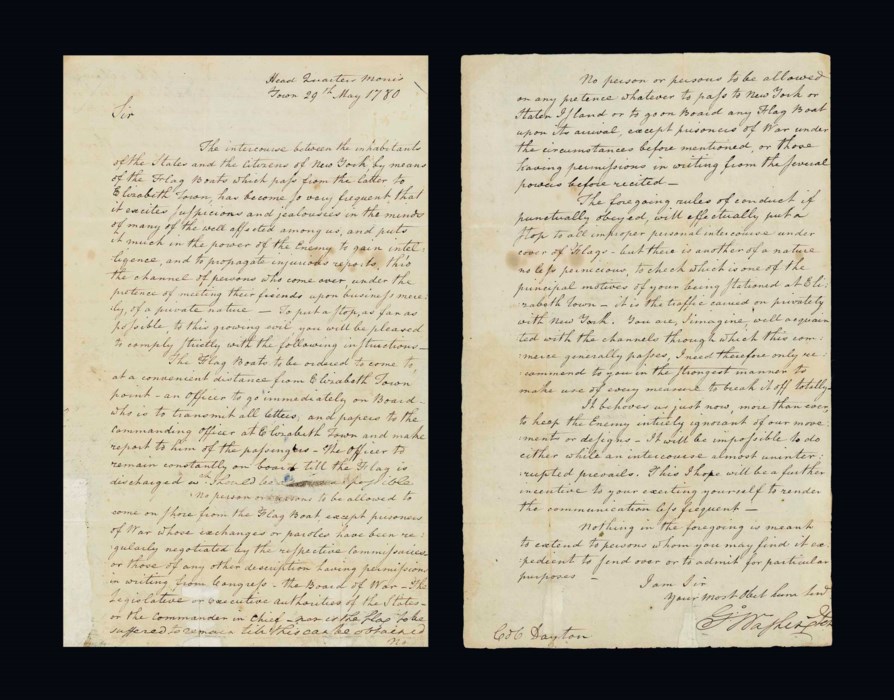 Head Quarters Morris
Town 29th May 1780
Sir
The intercourse between the inhabitants
of the States and the Citizens of New York, by means
of the Flag Boats which pass from the latter to
Elizabeth Town, has become so very frequent, that
it excites suspicions and jealousies in the minds
of many of the well affected among us, and puts
it much in the power of the Enemy to gain intel-
ligence, and to propagate injurious reports, this
the channel of persons who come over under the
pretence of meeting their friends upon business mere-
ly, of a private nature — To put a stop, as far as
possible, to this growing evil, you will be pleased
to comply strictly with the following instructions —
The Flag Boats to be ordered to come to,
at a convenient distance from Elizabeth Town
point – an officer to go immediately on Board –
who is to transmit all letters, and papers to the
Commanding officer at Elizabeth Town and make
report to him of the passengers – The officer to
remain constantly on board till the Flag is
discharged wch should be as possible
No person or persons to be allowed to
come on shore from the Flag Boat, except prisoners
of War whose exchanges or paroles have been re:
gularly negotiated by the respective Commissaries
or those of any other description having permissions
in writing from Congress – the Board of War – The
Legislative or executive authorities of the States –
or the Commander in Chief – nor is the flag to be
suffered to remain till this can be obtained
No
No person or persons to be allowed
on any pretence whatever to pass to New York or
Staten Island or to go on Board any Flag Boat
upon its arrival, except prisoners of War under
the circumstances before mentioned, or those
having permissions in writing from the several
powers before recited —
The foregoing rules of conduct if
punctually obeyed, will effectually put a
stop to all improper personal intercourse under
cover of Flags – but there is another of a nature
no less pernicious, to check which is one of the
principal motives of your being stationed at Eli:
zabeth Town – it is the traffic carried on privately
with New York. You are, I imagine, well acquain
ted with the channels through which this com:
merce generally passes, I need therefore only re:
commend to you in the strongest manner to
make use of every measure to break it off totally –
It behoves us just now, more than ever
to keep the Enemy entirely ignorant of our move:
ments or designs – It will be impossible to do
either while an intercourse almost uninter:
rupted prevails. This I hope will be a further
incentive to your exerting yourself to render
the communication less frequent —
Nothing in the foregoing is meant
to extend to persons whom you may find it ex
pedient to send over or to admit for particular
purposes —
I am Sir
Your most Obet Hum Servt
Go Washington
Colo Dayton